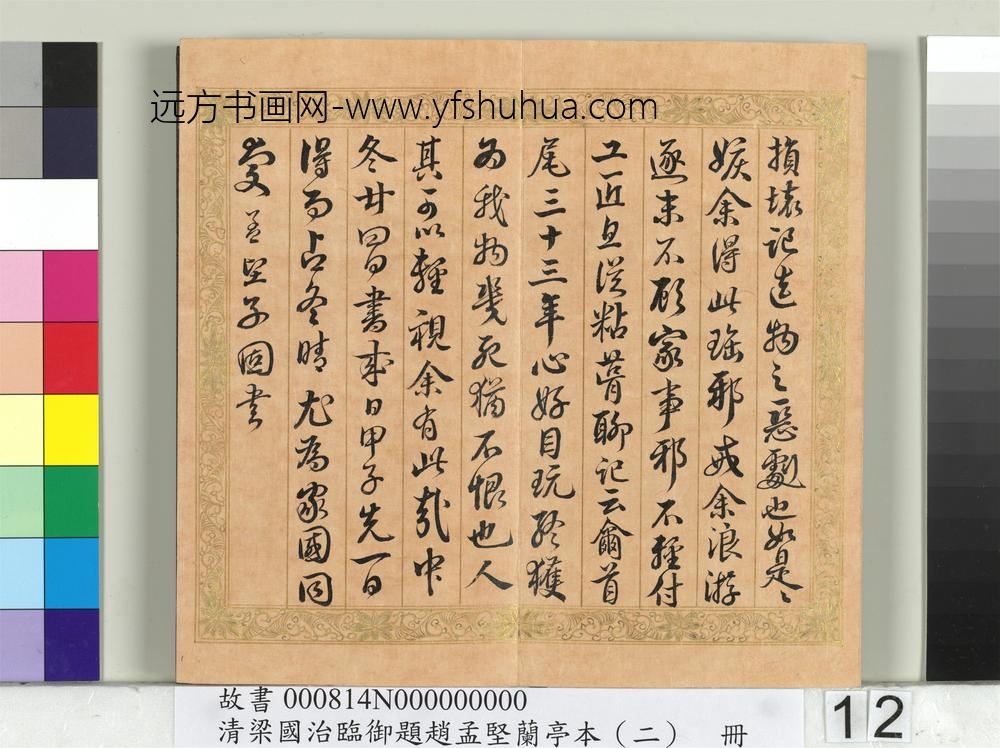 远方书画网-www.yfshuhua.com
損壞記造物之惡劇也如是〻
嫉余得此瑶邪或余浪游
遂末不顧家事邪不輕付
工匠且從粘膋聊記云爾首
尾三十三年心好目玩終獲
為我物幾死猶不恨也人
其可以輕視余有此哉中
冬廿四日書來日甲子先一日
得雨占冬晴尤為家國同
慶 孟堅子固書
故書 000814N000000000
清梁國治臨御題趙孟堅蘭亭本（二） 冊
12